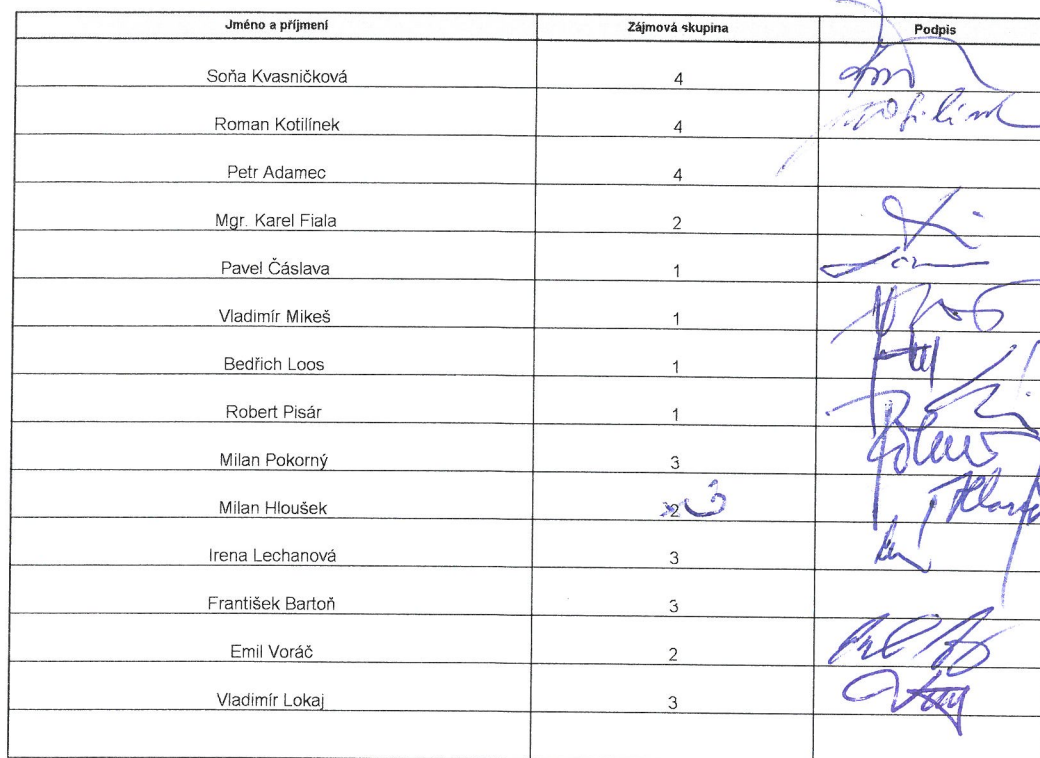 Jméno a příjmení Zájmová skupina Podpis
Soňa Kvasničková 4
Roman Kotilínek 4
Petr Adamec 4
Mgr. Karel Fiala 2
Pavel Čáslava 1
Vladimír Mikeš 1
Bedřich Loos 1
Robert Pisár 1
Milan Pokorný 3
Milan Hloušek 2 3
Irena Lechanová 3
František Bartoň 3
Emil Voráč 2
Vladimír Lokaj 3